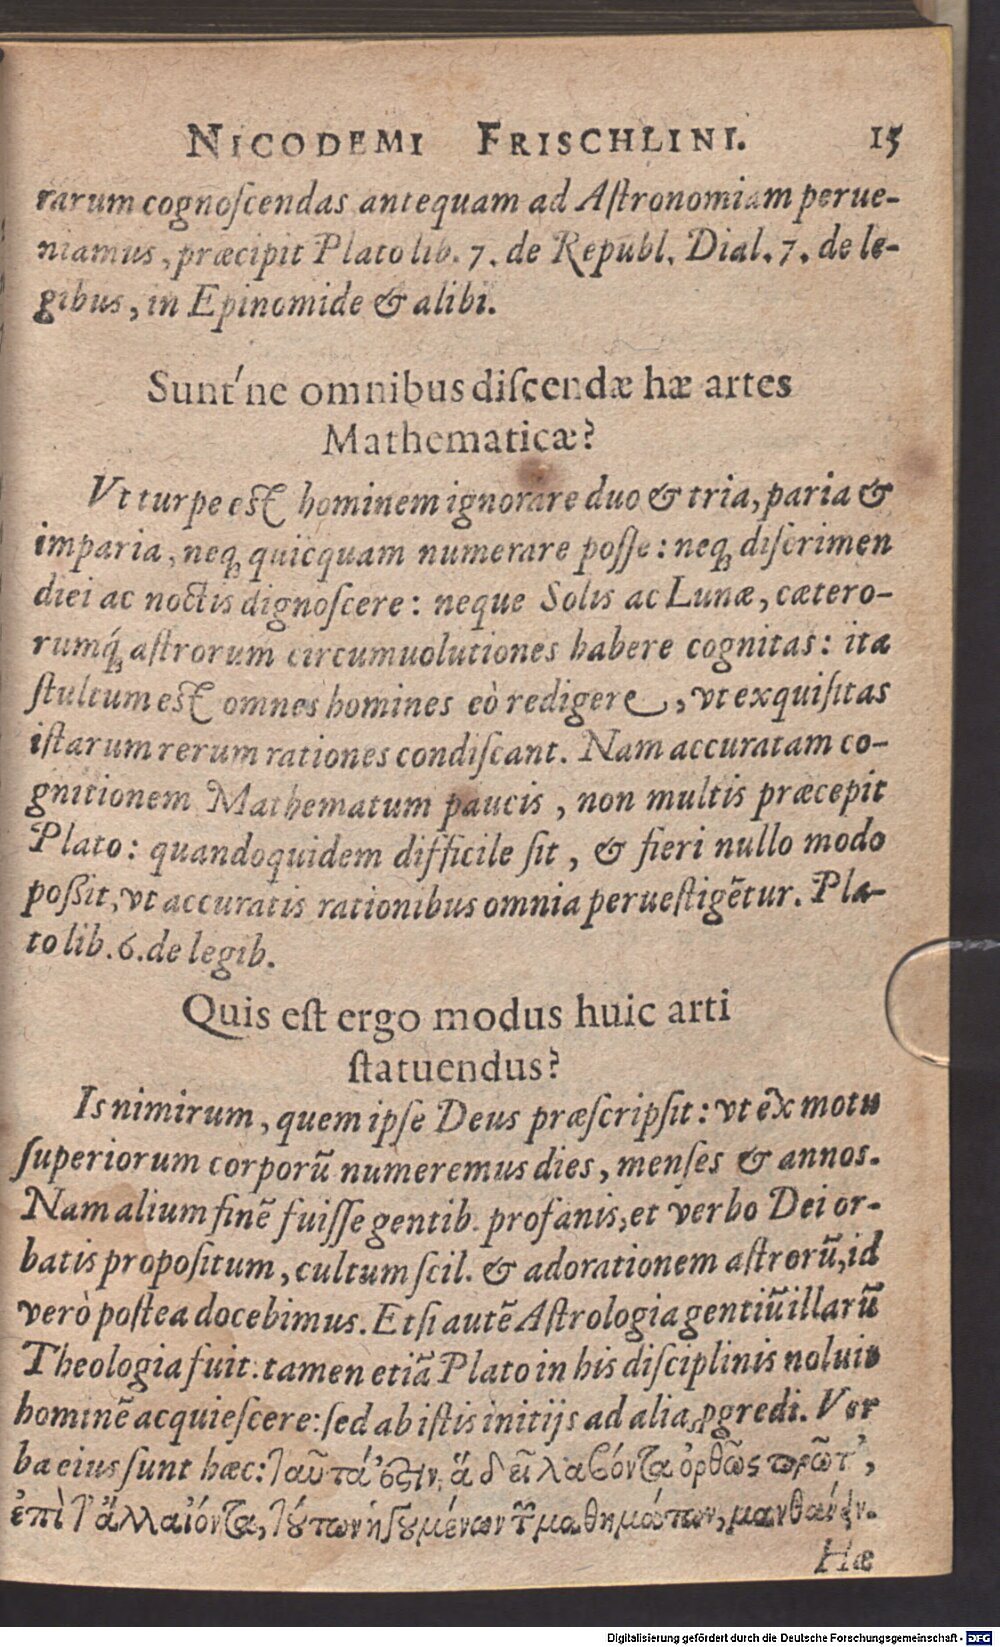 NICODEMI FRISCHLINI. 15
rarum cognoſcendas antequam ad Aſtronomiam perue-
niamus, præcipit Plato lib. 7. de Republ. Dial. 7. de le-
gibus, in Epinomide & alibi.
Sunt'ne omnibus diſcendæ hæ artes
Mathematicæ?
Vt turpe eſt hominem ignorare duo & tria, paria &
imparia, neq; quicquam numerare poſſe: neq; diſcrimen
diei ac noctis dignoſcere: neque Solis ac Lunæ, cætero-
rumq́; aſtrorum circumuolutiones habere cognitas: ita
ſtultum eſt omnes homines eò redigere, vt exquiſitas
iſtarum rerum rationes condiſcant. Nam accuratam co-
gnitionem Mathematum paucis, non multis præcepit
Plato: quandoquidem difficile ſit, & fieri nullo modo
poßit, vt accuratis rationibus omnia perueſtigētur. Pla-
to lib. 6. de legib.
Quis eſt ergo modus huic arti
ſtatuendus?
Is nimirum, quem ipſe Deus præſcripſit: vt ex motu
ſuperiorum corporū numeremus dies, menſes & annos.
Nam alium finē fuiſſe gentib. profanis, et verbo Dei or-
batis propoſitum, cultum ſcil. & adorationem aſtrorū, id
verò poſtea docebimus. Etſi autē Aſtrologia gentiū illarū
Theologia fuit: tamen etiā Plato in his diſciplinis noluit
hominē acquieſcere: ſed ab iſtis initijs ad alia ꝓgredi. Ver
ba eius ſunt hæc: ταῦτά ἐστιν, ἃ δεῖ λαβόντα ὀρθῶς πρῶτ',
ἐπὶ τἄλλα ἰόντα, τούτων ἡγουμένων τῶν μαθημάτων, μανθάνειν.
Hæ
Digitalisierung gefördert durch die Deutsche Forschungsgemeinschaft - DFG